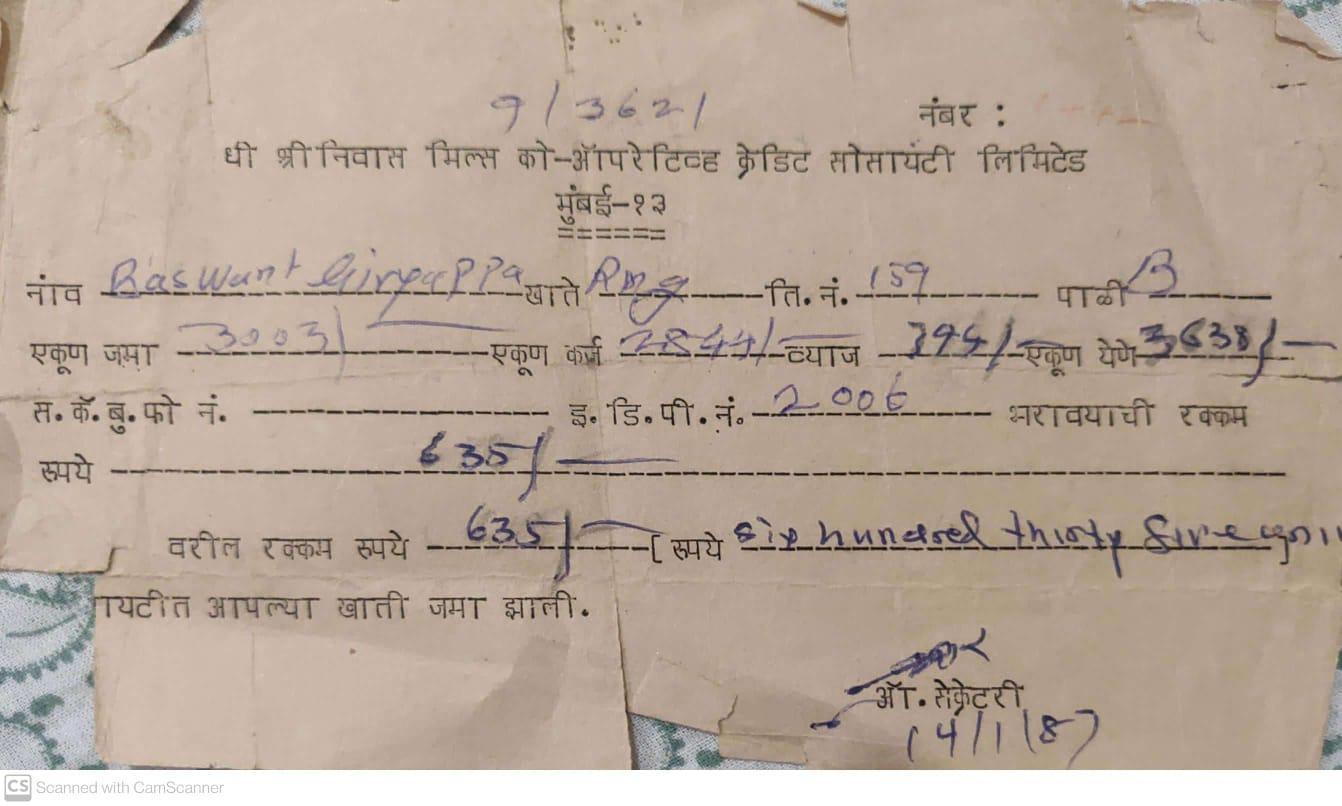 9/3621
नंबर :
धी श्रीनिवास मिल्स को-ऑपरेटिव्ह क्रेडिट सोसायटी लिमिटेड
मुंबई-१३
नांव Baswant Giryappa खाते Rmg ति. नं. 159 पाळी B
एकूण जमा 3003/- एकूण कर्ज 2844/- व्याज 394/- एकूण येणे 3638/-
स. कॅ. बु. फो नं. इ. डि. पी. नं. 2006 भरावयाची रक्कम
रुपये 635/-
वरील रक्कम रुपये 635/- [ रुपये six hundred thirty five
यटीत आपल्या खाती जमा झाली.
ऑ. सेक्रेटरी
14/1/87
CS Scanned with CamScanner